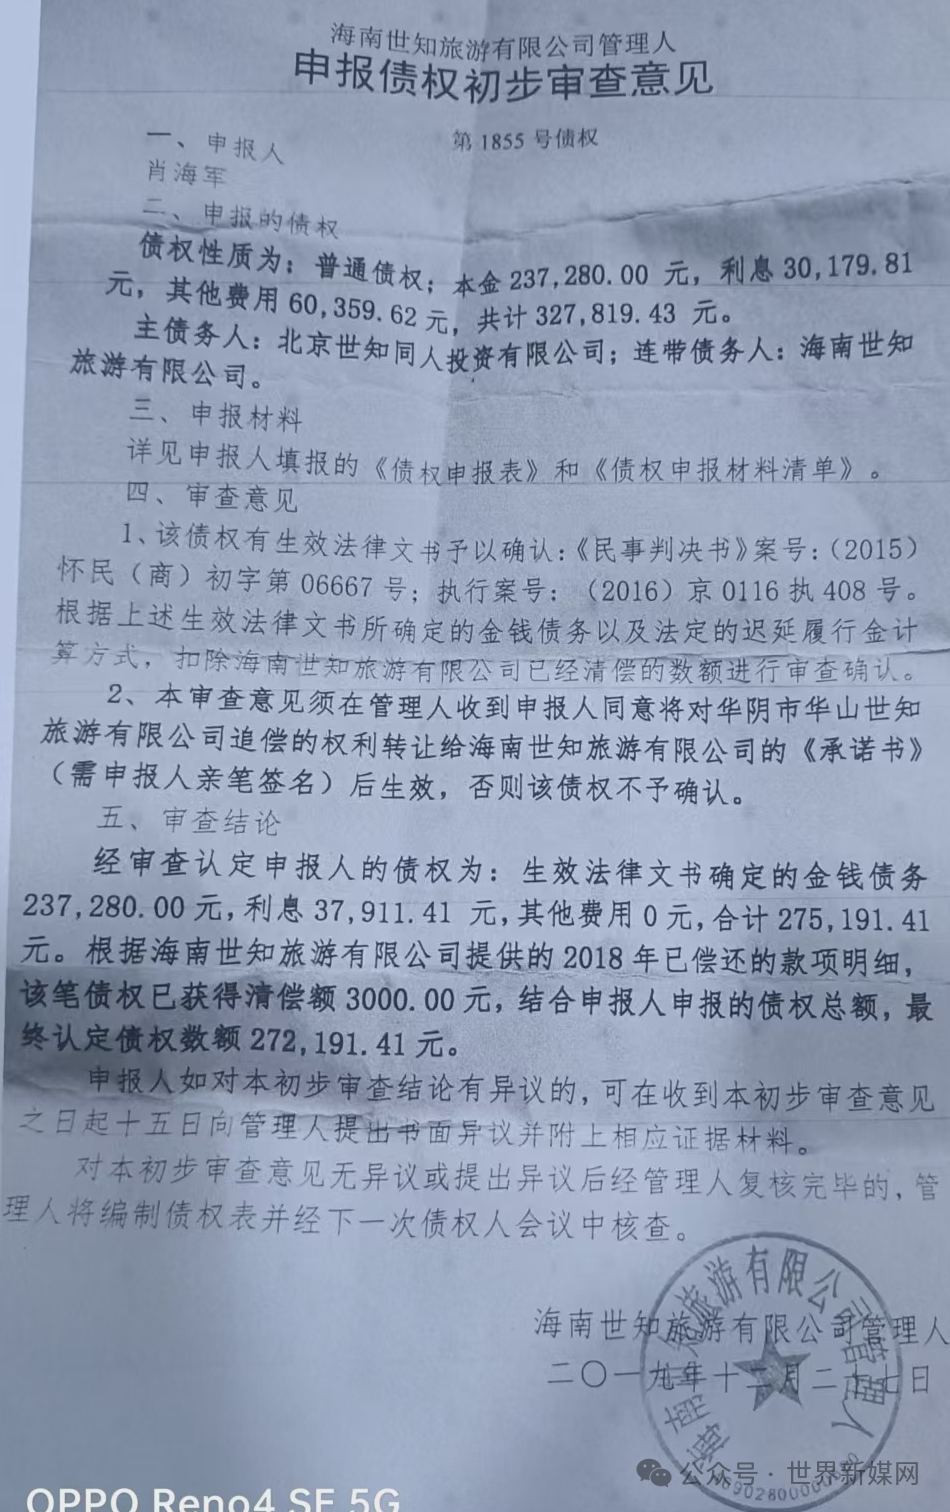 海南世知旅游有限公司管理人
申报债权初步审查意见
第 1855 号债权
一、申报人
肖海军
二、申报的债权
债权性质为：普通债权；本金 237,280.00 元，利息 30,179.81
元，其他费用 60,359.62 元，共计 327,819.43 元。
主债务人：北京世知同人投资有限公司；连带债务人：海南世知
旅游有限公司。
三、申报材料
详见申报人填报的《债权申报表》和《债权申报材料清单》。
四、审查意见
1、该债权有生效法律文书予以确认：《民事判决书》案号：（2015）
怀民（商）初字第 06667 号；执行案号：（2016）京 0116 执 408 号。
根据上述生效法律文书所确定的金钱债务以及法定的迟延履行金计
算方式，扣除海南世知旅游有限公司已经清偿的数额进行审查确认。
2、本审查意见须在管理人收到申报人同意将对华阴市华山世知
旅游有限公司追偿的权利转让给海南世知旅游有限公司的《承诺书》
（需申报人亲笔签名）后生效，否则该债权不予确认。
五、审查结论
经审查认定申报人的债权为：生效法律文书确定的金钱债务
237,280.00 元，利息 37,911.41 元，其他费用 0 元，合计 275,191.41
元。根据海南世知旅游有限公司提供的 2018 年已偿还的款项明细，
该笔债权已获得清偿额 3000.00 元，结合申报人申报的债权总额，最
终认定债权数额 272,191.41 元。
申报人如对本初步审查结论有异议的，可在收到本初步审查意见
之日起十五日向管理人提出书面异议并附上相应证据材料。
对本初步审查意见无异议或提出异议后经管理人复核完毕的，管
理人将编制债权表并经下一次债权人会议中核查。
海南世知旅游有限公司管理人
二〇一九年十二月二十七日
海南世知旅游有限公司管理人
公众号·世界新媒网
OPPO Reno4 SE 5G